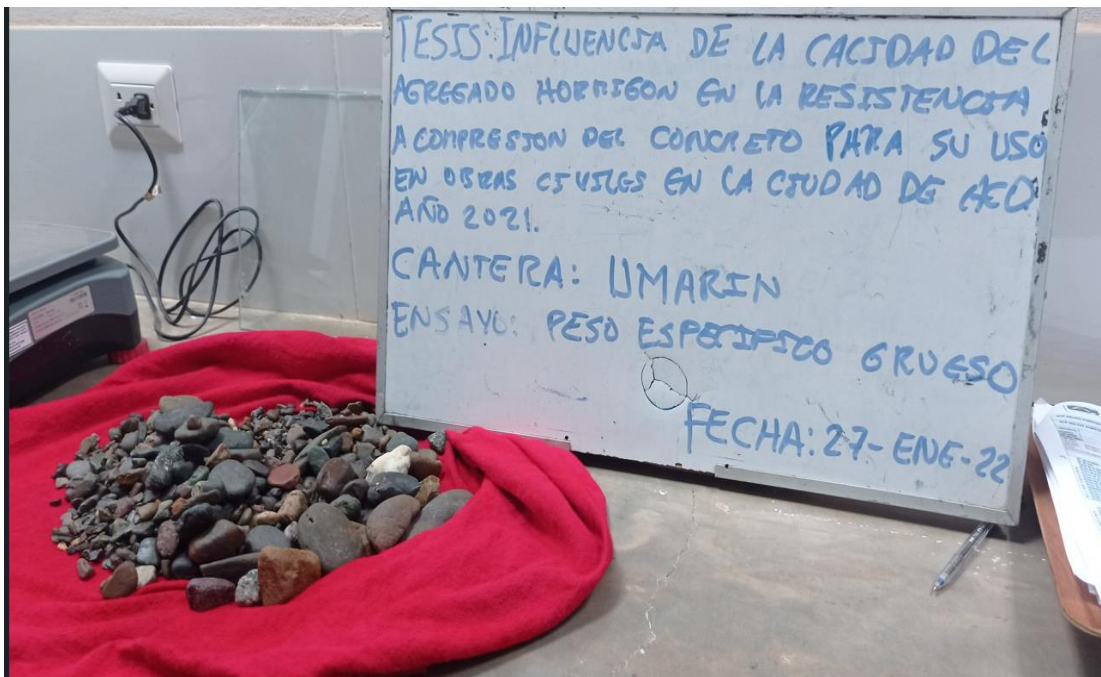 TESIS: INFLUENCIA DE LA CALIDAD DEL
AGREGADO HORMIGON EN LA RESISTENCIA
A COMPRESION DEL CONCRETO PARA SU USO
EN OBRAS CIVILES EN LA CIUDAD DE
AÑO 2021.
CANTERA: UMARIN
ENSAYO: PESO ESPECIFICO GRUESO
FECHA: 27-ENE-22